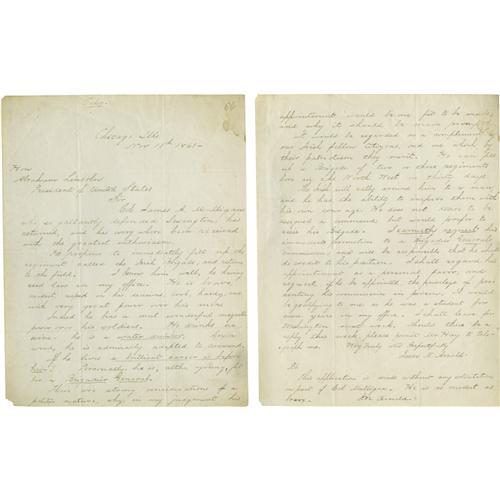 Copy.
66
Chicago Ills
Nov 11th 1861-
Hon
Abraham Lincoln
President of United States
Sir
Col James A. Mulligan
who so gallantly defended Lexington, has
returned, and his way here been received
with the greatest enthusiasm.
He proposes to immediately fill up the
regiment called the Irish Brigade, and return
to the field. I know him well, he having
read law in my office. He is brave,
modest, cool, hardy, and
with great power over his men
Indeed he has a most wonderful magnetic
power over his soldiers. He drinks no
wine. he is a water drinker.
and, he is admirably adapted to command,
if he lives a brilliant career is before
him. Personally he is, altho young, fit
for a Brigadier General.
There are strong considerations of a
politic nature, why in my judgement his
appointment would be one fit to be made,
and why it should be made promptly.
It would be regarded as a compliment to
our Irish fellow citizens, and one which by
their patriotism they merit. He can fill
up a Brigade of two or three regiments
here in the North West in thirty days.
The Irish will rally around him to a man,
and he has the ability to inspire them with
his own courage. He does not wish to be
assigned a command but would prefer to
raise his Brigade. I earnestly request his
immediate promotion to a Brigadier Generals
commission, and will be responsible that he will
do credit to his station. I shall regard his
appointment as a personal favor, and
request if he be appointed, the privilege of presenting
his commission in person. It would
be gratifying to me as he was a student for
some years in my office. I shall leave for
Washington next week. Should there be a
reply this week, please direct Mr Hay to telegraph
me.
Very Truly and Respectfully
Isaac N. Arnold.
PS
This application is made without any solicitation
on part of Col Mulligan. He is as modest as
brave.
I.N. Arnold.